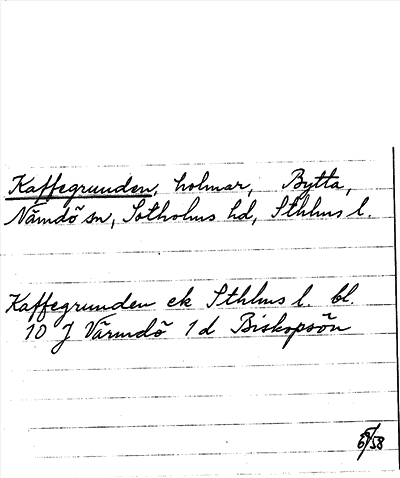 Kaffegrunden, holmar, Bytta,
Nämdö sn, Sotholms hd, Sthlms l.
Kaffegrunden ek Sthlms l. bl.
10 J Värmdö 1d Biskopsön